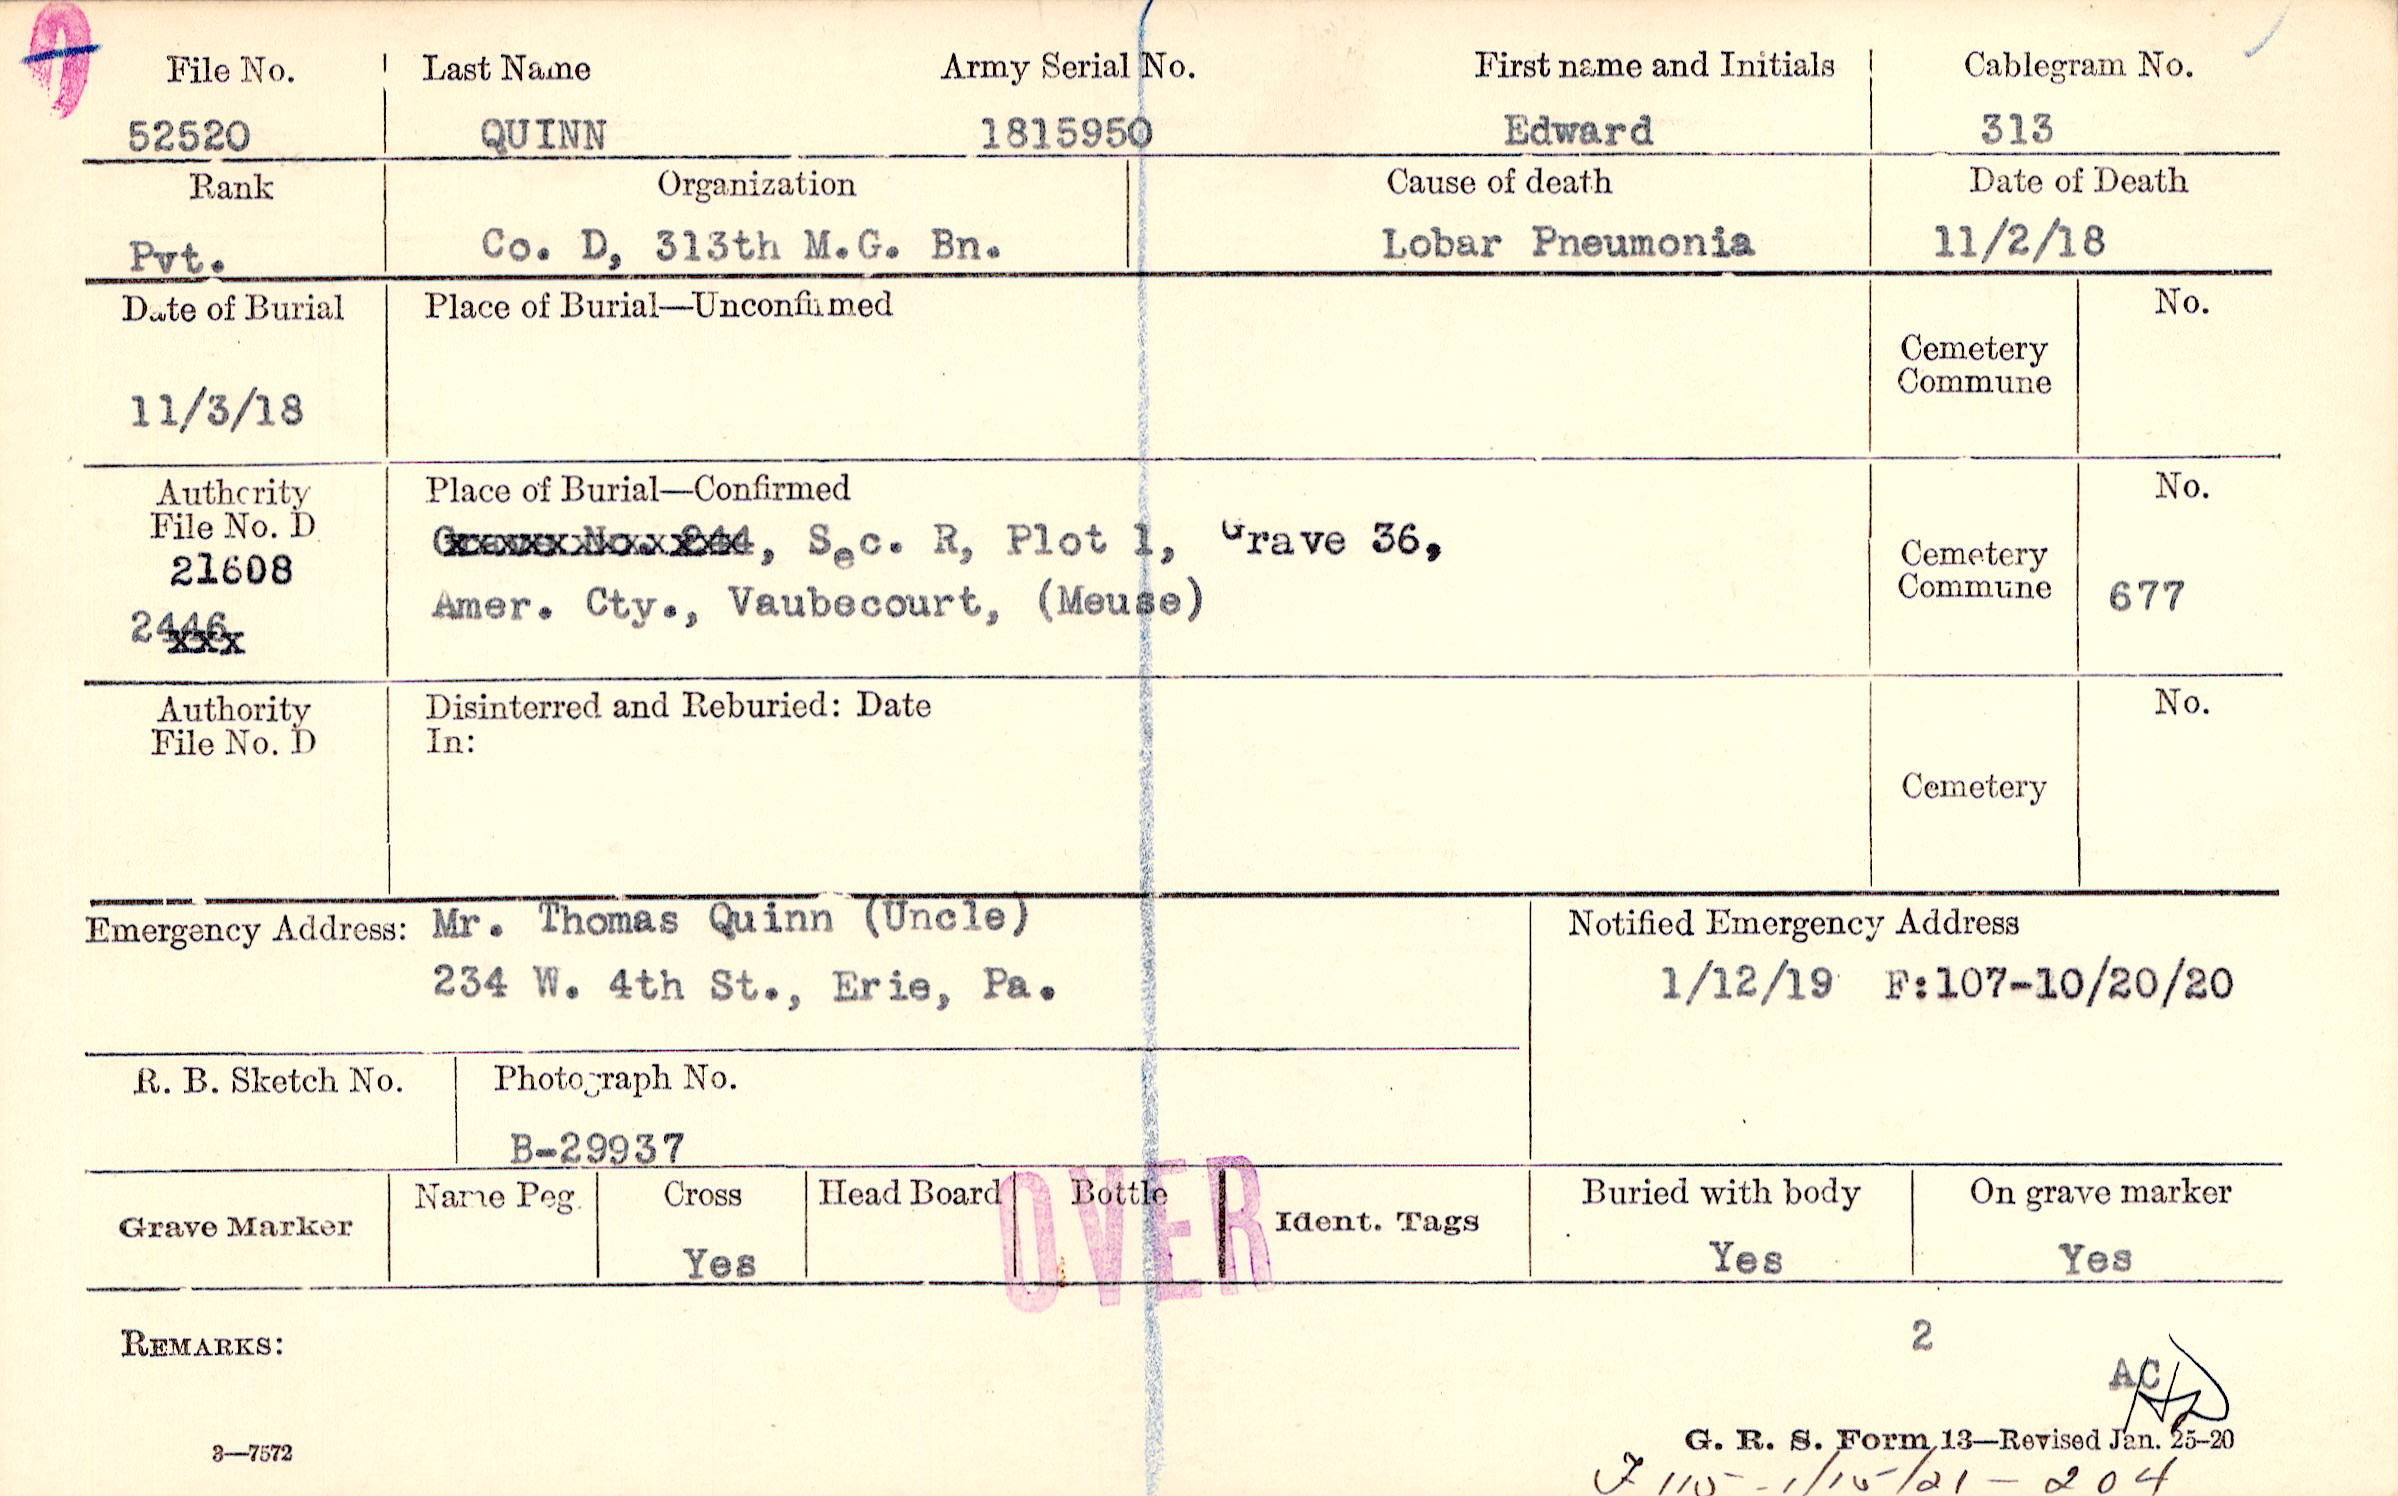 File No. Last Name Army Serial No. First name and Initials Cablegram No.
52520 QUINN 1815950 Edward 313
Rank Organization Cause of death Date of Death
Pvt. Co. D, 313th M.G. Bn. Lobar Pneumonia 11/2/18
Date of Burial Place of Burial—Unconfirmed No.
Cemetery
Commune
11/3/18
Authority Place of Burial—Confirmed No.
File No. D
21608 Grave No. 244, Sec. R, Plot 1, Grave 36,
Cemetery
Commune 677
2446 Amer. Cty., Vaubecourt, (Meuse)
xxx
Authority Disinterred and Reburied: Date No.
File No. D In:
Cemetery
Emergency Address: Mr. Thomas Quinn (Uncle) Notified Emergency Address
234 W. 4th St., Erie, Pa. 1/12/19 F:107-10/20/20
R. B. Sketch No. Photograph No.
B-29937
Grave Marker Name Peg. Cross Head Board Bottle Ident. Tags Buried with body On grave marker
Yes Yes Yes
OVER
REMARKS: 2
AC
3—7572 G. R. S. Form 13—Revised Jan. 25-20
F 115 - 1/15/21 - 204